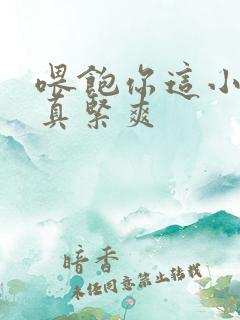 喂飽你這小
真緊爽
暗香
未经同意禁止转载